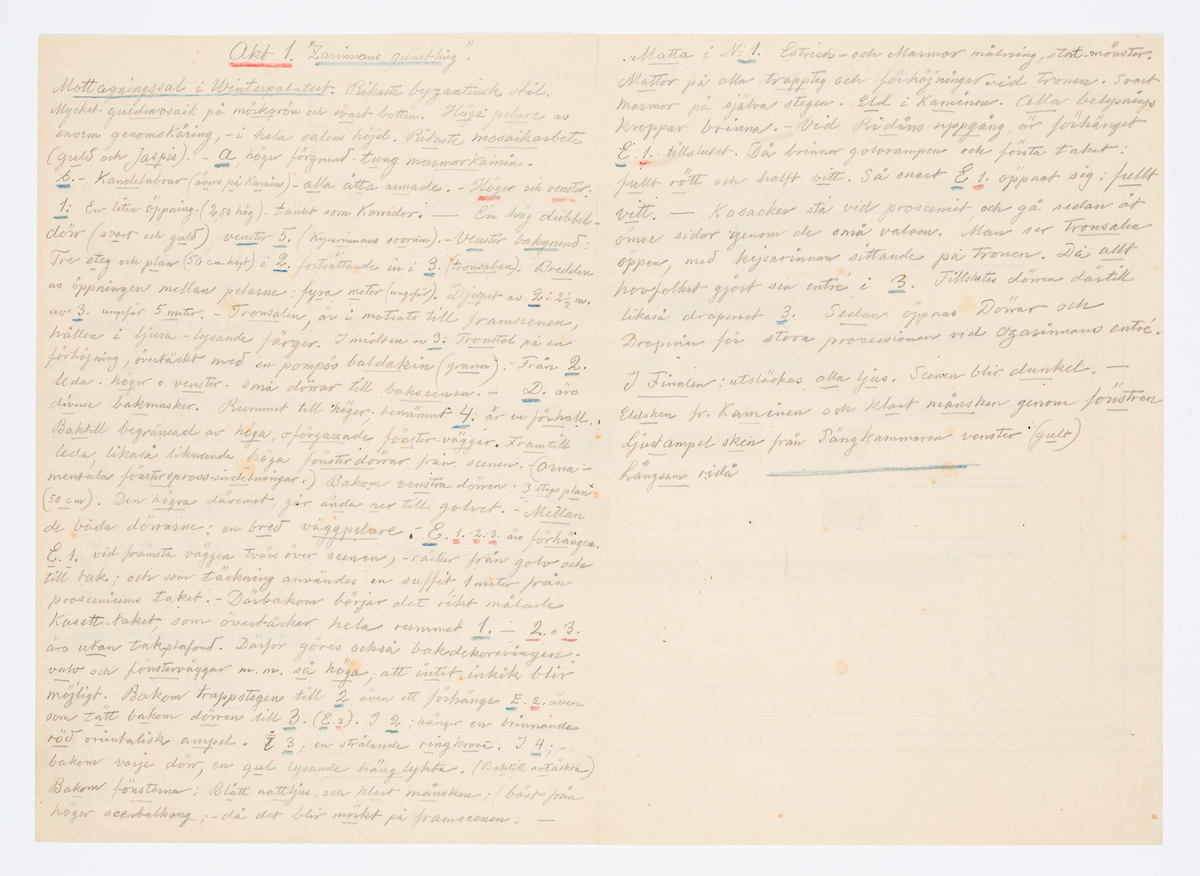 Akt 1. "Zarinnans gunstling".
Mottagningssal i Winterpalatset. Rikaste byzantinsk stil.
Mycket guldmosaik på mörkgrön och svart botten. Höga pelare av
enorm genomskäring, - i hela salens höjd. Rikaste mosaikarbete
(guld och Jaspis). - a, höger förgrund tung marmorkamin.
b. -, Kandelabrar (även på Kamins) - alla åtta-armade. - Höger och venster.
1: En liten öppning. (250 hög) - tänkt som Korridor. — En hög dubbel-
dörr (svart och guld), venster 5. (Kejsarinnans sovrum). - Venster bakgrund:
Tre steg och plan (50 cm högt) i 2. fortsättande in i 3. (tronsalen). Bredden
av öppningen mellan pelarne: fyra meter (ungför). Djupet av 2: 2½ m.
av 3. ungför 5 meter. - Tronsalen, är i motsats till framscenen,
hållen i ljusa - lysande färger. I midten av 3: Tronstol på en
förhöjning, övertäckt med en pompös baldakin (grann). - Från 2.
leda - höger o. venster - små dörrar till bakscenen. - D. äro
diverse bakmasker. Rummet till höger, benämnt 4: är en förhall.
Baktill begränsad av höga, oförgazade fönster-väggar. Framtill
leda, likaså liknande höga fönsterdörrar från scenen. (Orna-
mentala fönsterspross-indelningar.) Bakom venstra dörren: 3 stegs plan
(50 cm). Den högra däremot, går ända ner till golvet. - Mellan
de båda dörrarne: en bred väggpelare. - E. 1. 2. 3. äro förhängen.
E. 1. vid främsta väggen tvärs över scenen, - räcker från golv och
till tak; och som täckning användes en suffit 1 meter från
prosceniums taket. - Därbakom börjar det rikt målade
Kasett-taket, som övertäcker hela rummet 1. - 2. o 3.
äro utan takplafond. Därför göres också bakdekoreringen:
valv och fönsterväggar m.m. så höga, att intet inkik blir
möjligt. Bakom trappstegen till 2 även ett förhänge E. 2. även
som tätt bakom dörren till 3. (E. 3). I 2; hänger en brinnande
röd orientalisk ampel. I 3; en strålande ringkrona. I 4; -
bakom varje dörr, en gul lysande hänglykta. (Baktill avtäckta)
Bakom fönsterna: Blått nattljus, och klart månsken; (bäst från
höger scenbalkong; - då det blir mörkt på framscenen. —
Matta i N: 1. Estrich - och Marmor målning, stort mönster.
Mattor på alla trappsteg och förhöjningar vid tronen. Svart
marmor på själva stegen. Eld i Kaminen. Alla belysnings
kroppar brinna. - Vid Ridåns uppgång, är förhänget
E. 1. tillslutet. Då brinner golvrampen och första taket:
fullt rött och halft vitt. Så snart E 1. öppnat sig: fullt
vitt. — Kosacker stå vid prosceniet, och gå sedan åt
ömse sidor genom de små valven. Man ser tronsalen
öppen, med kejsarinnan sittande på tronen. Då allt
hovfolket gjort sin entré i 3. Tillslutes dörren därtill
likaså draperiet 3. Sedan öppnas Dörrar och
Draperier för stora processionen vid czarinnans entré.
I Finalen: utsläckas alla ljus. Scenen blir dunkel. —
Eldsken fr. Kaminen och klart månsken genom fönstren
Ljusampel sken från Sängkammaren venster (gult)
Långsam ridå